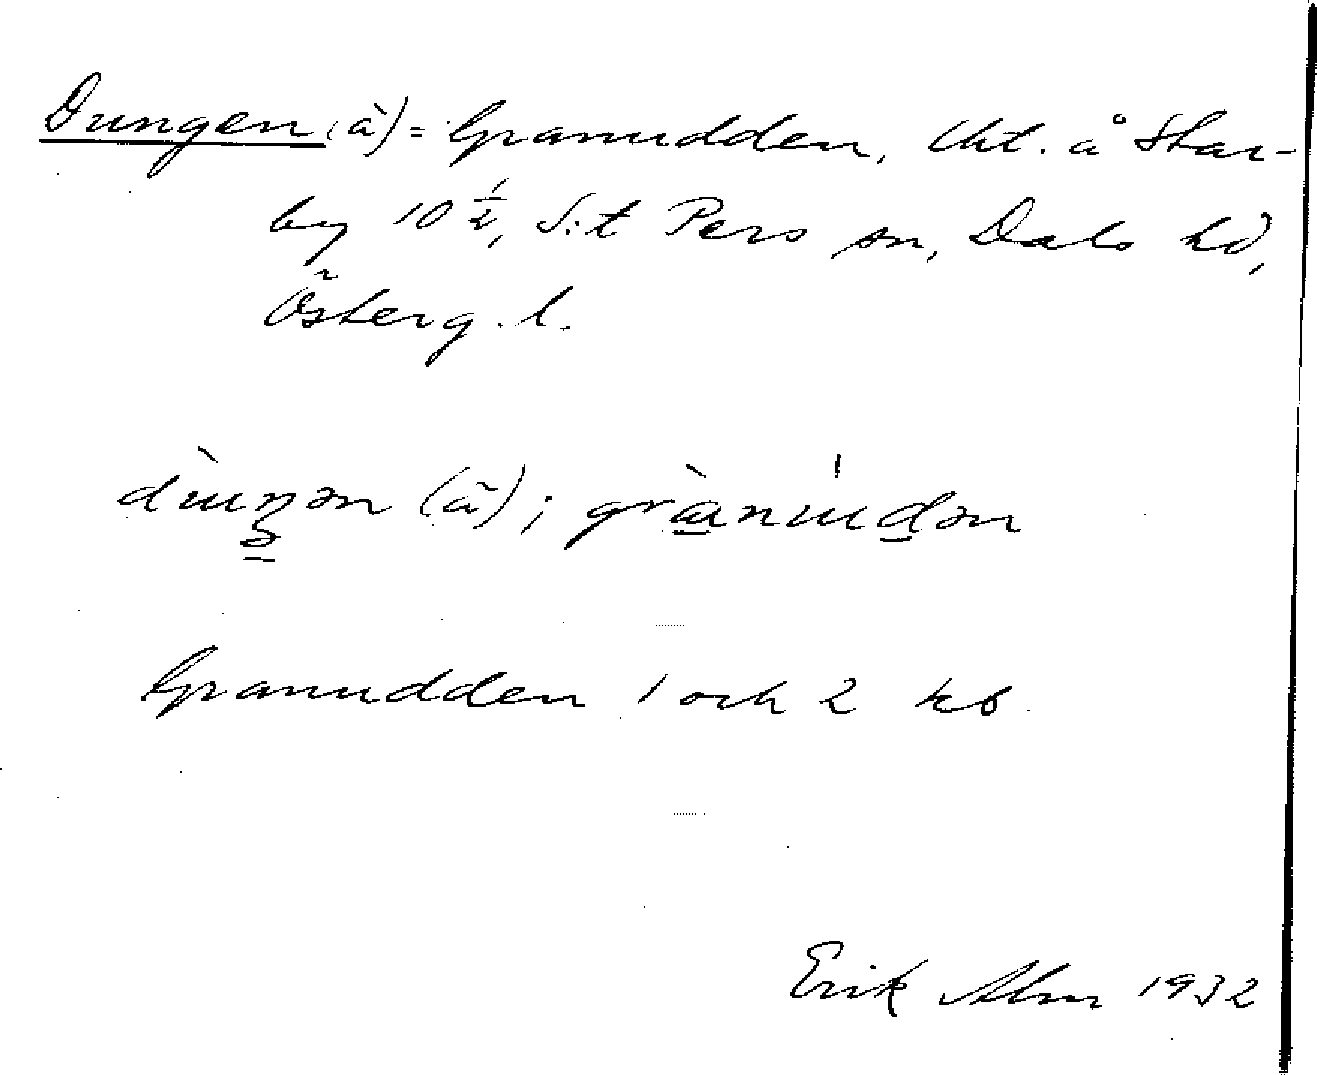 Dungen (ä) = Granudden, Uht. å Star-
by 10 ½, S:t Pers sn, Dals hd,
Österg. l.
dùŋən (ä); grànu̍dən
Granudden 1 och 2 kb
Erik Alm 1932